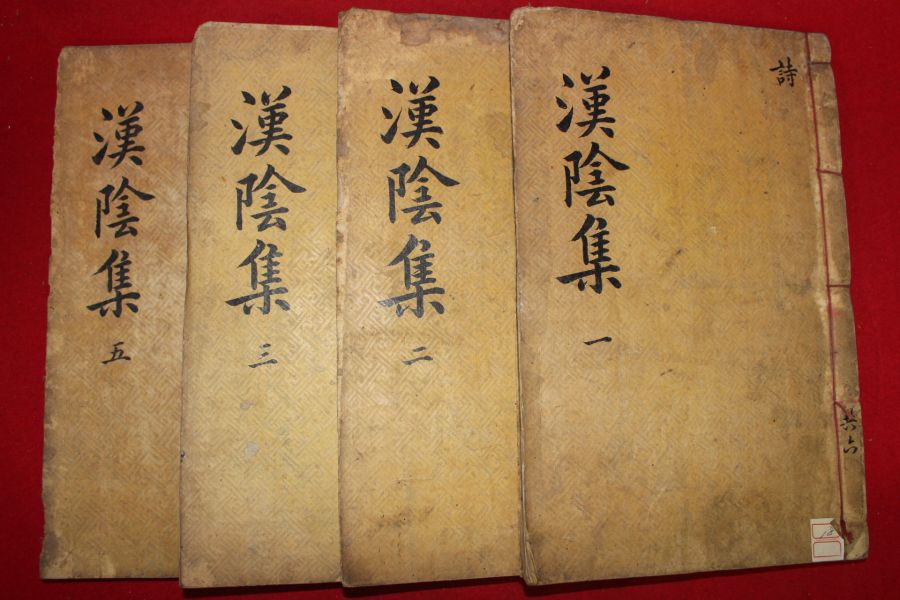 詩
漢陰集 一
共六
漢陰集 二
漢陰集 三
漢陰集 五